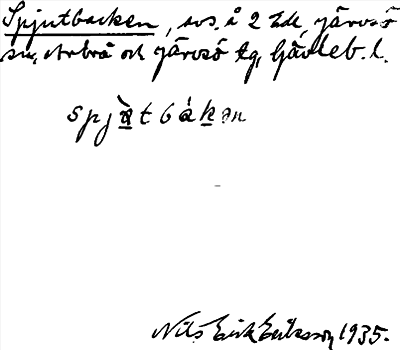 Spjutbacken, avs. å 2 Lde, Järvsö
sn, Arbrå och Järvsö tg, Gävleb. l.
spjùtbákən
Nils Erik Eriksson 1935.